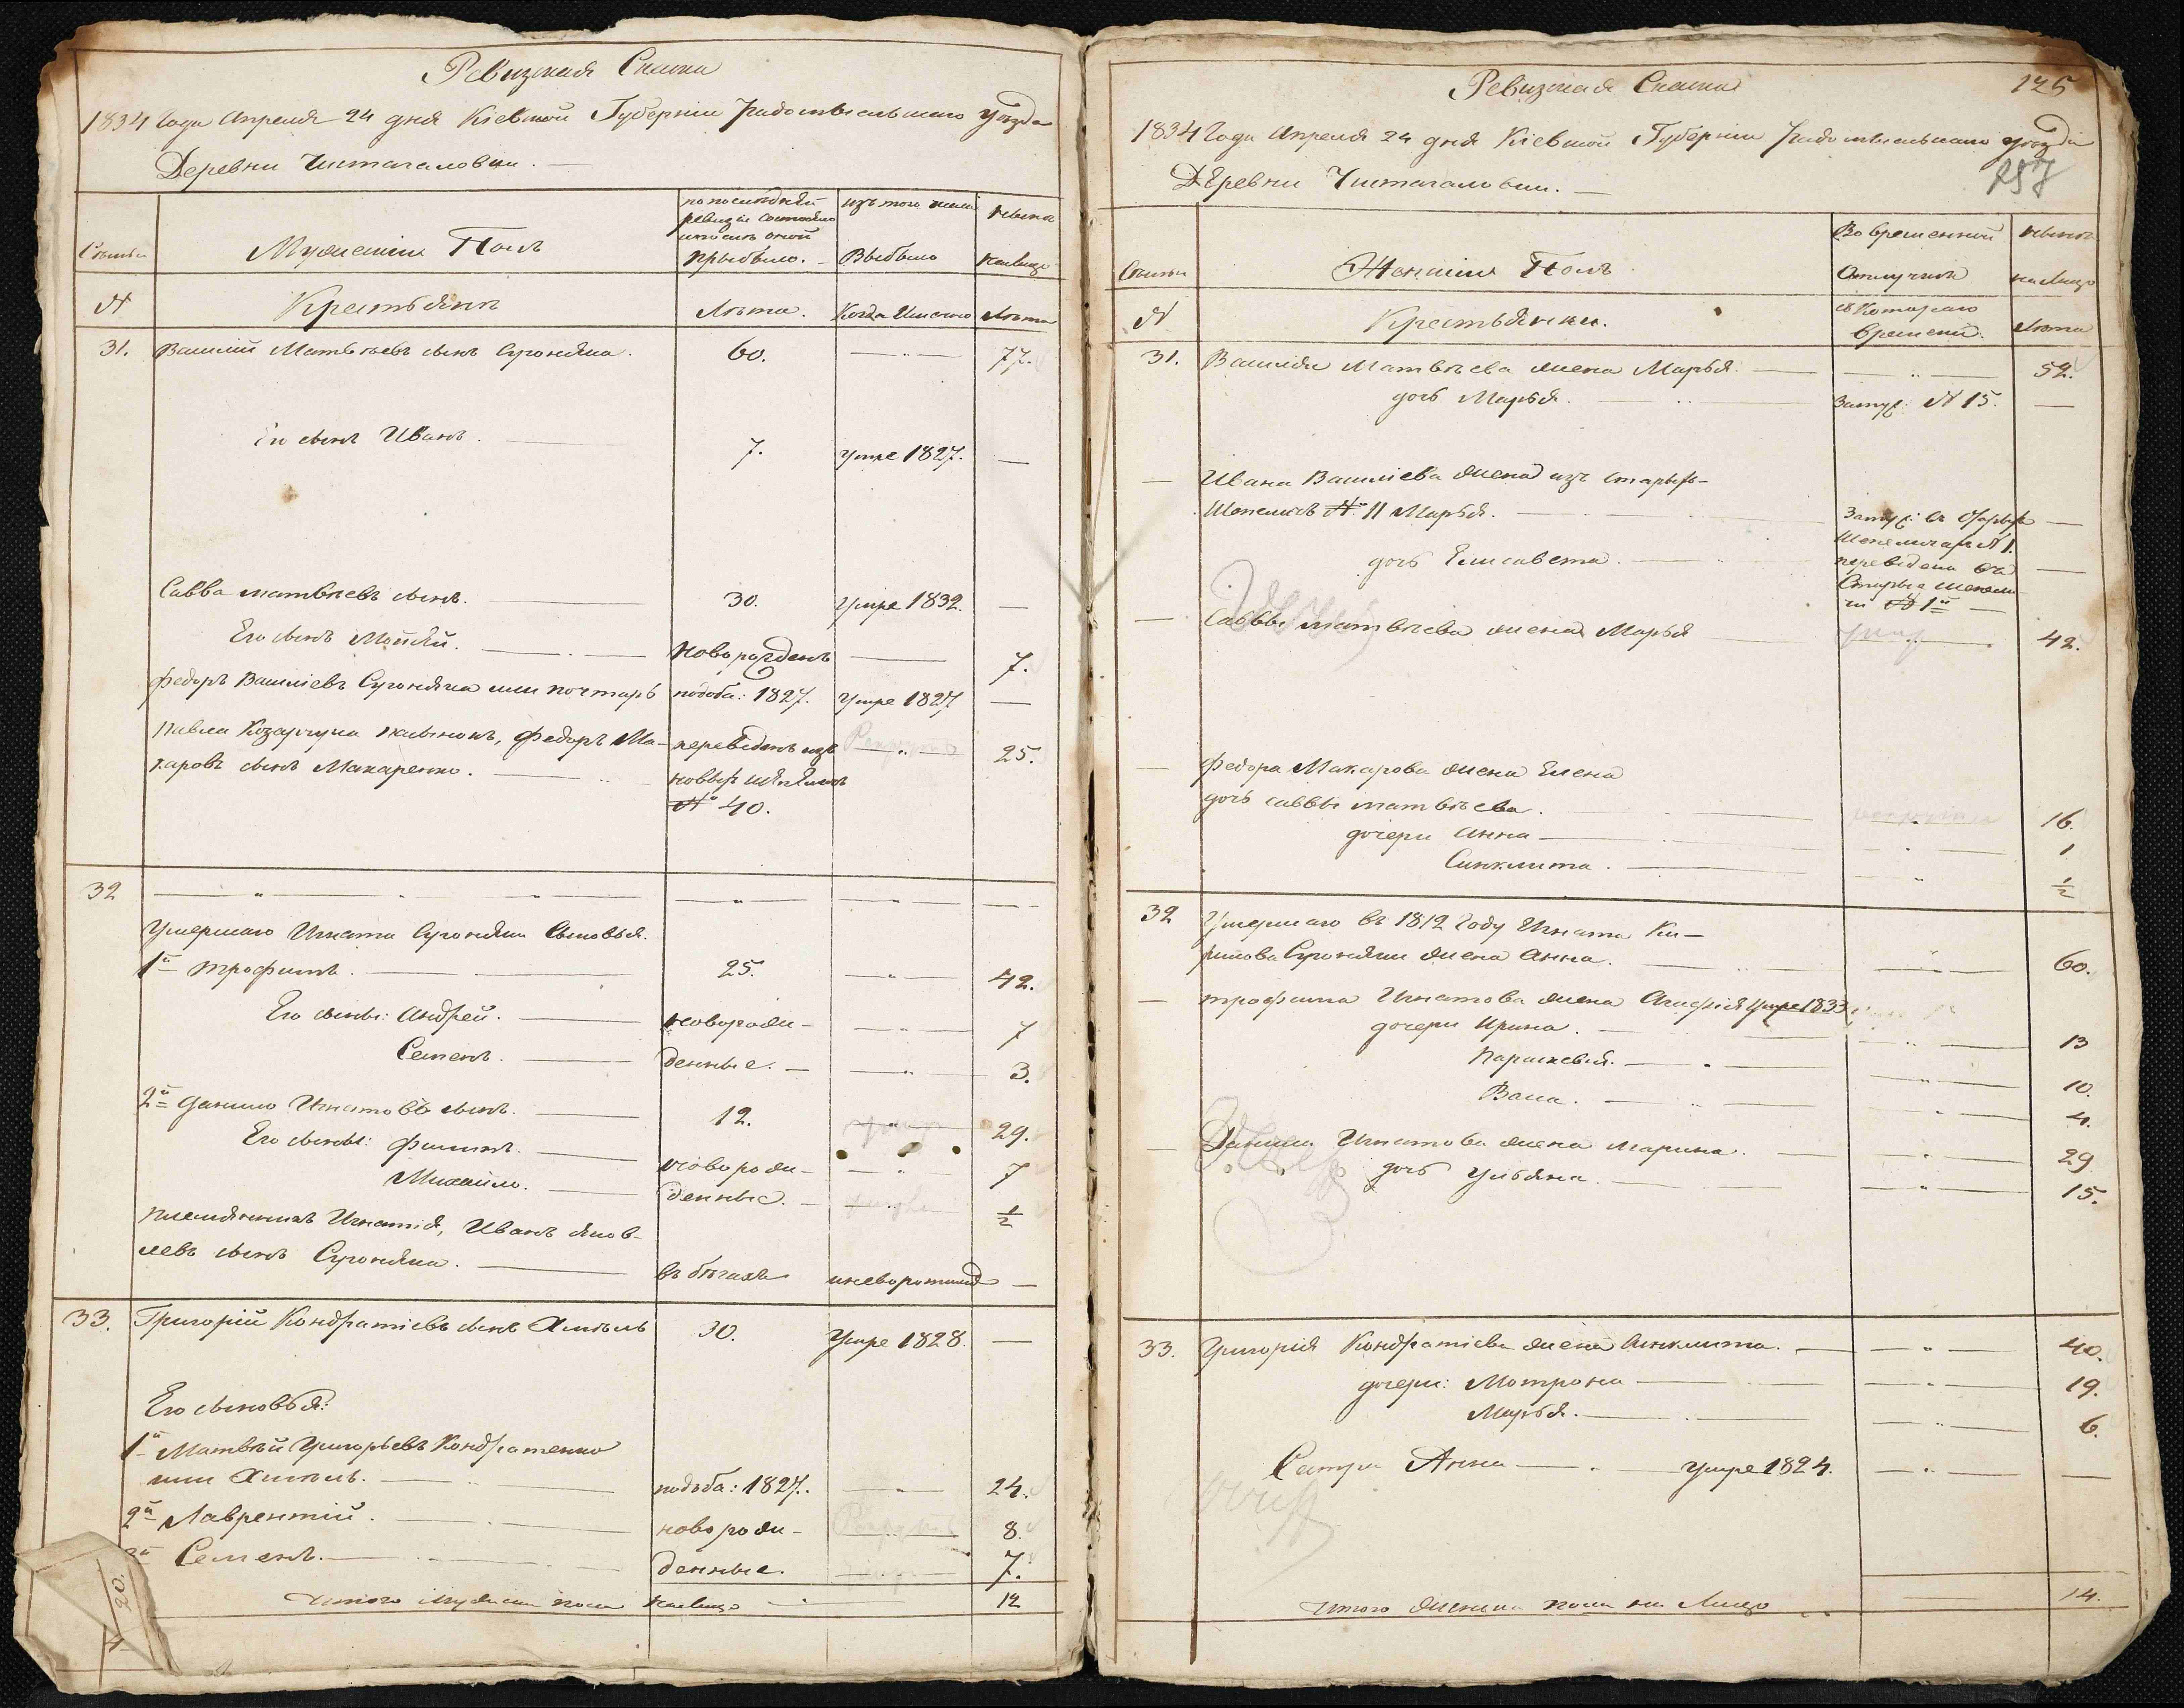 Ревизская Сказка
1834 Года Апреля 24 дня Кіевской Губерніи Радомысльскаго уезда
Деревни Чистагаловки.
Семьи
Мужескій Полъ
по последней
ревизіи состояло
и после оной
прыбыло.
изъ того числа
Выбыло
ныне
на лицо
№
Крестьяне
Лета.
Когда Именно
Лета
31. Василій Матвеевъ сынъ Сугоняка. 60. 77.
Его сынъ Иванъ. 7. умре 1827.
Савва матвеевъ сынъ. 30. умре 1832.
Его сынъ Мойсей. новорожденъ 7.
федоръ Василіевъ Сугоняка или почтарь подоба: 1827. умре 1827
Павла Козарчука пасынокъ, федоръ Ма- переведенъ изъ 25.
каровъ сынъ Макаренко. новыхъ шепеличъ
№ 40.
32
Умершаго Игната Сугоняки Сыновья.
1й трофимъ. 25. 42.
Его сыны: Андрей. новорож- 7
Семенъ. денные. 3.
2й данило Игнатовъ сынъ. 12. 29.
Его сыны: филипъ. новорож- 7
Михайло. денные. 1/2
племянникъ Игнатія, Иванъ яков-
левъ сынъ Сугоняка. въ бегахъ
33. Григорій Кондратіевъ сынъ Хмель 30. Умре 1828.
Его сыновья:
1й Матвей Григорьевъ Кондратенко
или Хмель. подоба: 1827. 24.
2й Лаврентій. новорож- 8.
3й Семенъ. денные. 7.
Итого мужеска пола налицо 12
20.
Ревизская Сказка
125
1834 Года Апреля 24 дня Кіевской Губерніи Радомысльскаго уезда
Деревни Чистагаловки.
257
Семьи
Женскій Полъ
Во временной
Отлучке
ныне
на лицо
№
Крестьянки.
съ Котораго
времени.
Лета
31. Василія Матвеева жена Марья. 52.
дочь Марья. замуж: № 15.
Ивана Василіева жена изъ старыхъ-
Шепеличъ № 11 Марья. замуж: въ Старыхъ
Шепеличахъ № 1.
дочь Елисавета. переведена въ
Старые шепели-
чи № 1й
Саввы матвеева жена Марья 42.
федора Макарова жена Елена
дочь саввы матвеева. 16.
дочери Анна 1
Синклита. 1/2
32 Умершаго въ 1812 Году Игната Ки-
рилова Сугоняки жена Анна. 60.
трофима Игнатова жена Агафія умре 1833
дочери Ирина. 13
Параскевія. 10.
Васа. 4.
Данила Игнатова жена Марина. 29
дочь Ульяна. 15.
33. Григорія Кондратіева жена Синклита. 40.
дочери: Мотрона 19.
Марья. 6.
Сестра Анна умре 1824.
Итого женска пола на Лицо 14.